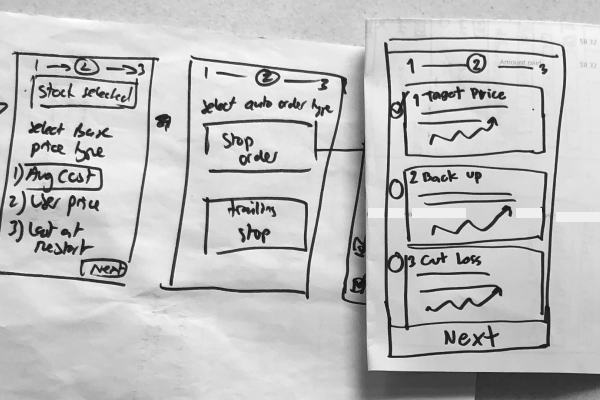 1 → 2 → 3
Stock selected
Select Base
price type
1) Avg Cost
2) User price
3) Last at
restart
Next
1 — 2 — 3
Select auto order type
Stop
order
trailing
stop
1 — 2 — 3
1 Target Price
2 Back up
3 Cut Loss
Next
Amount
SB 32
SB 32